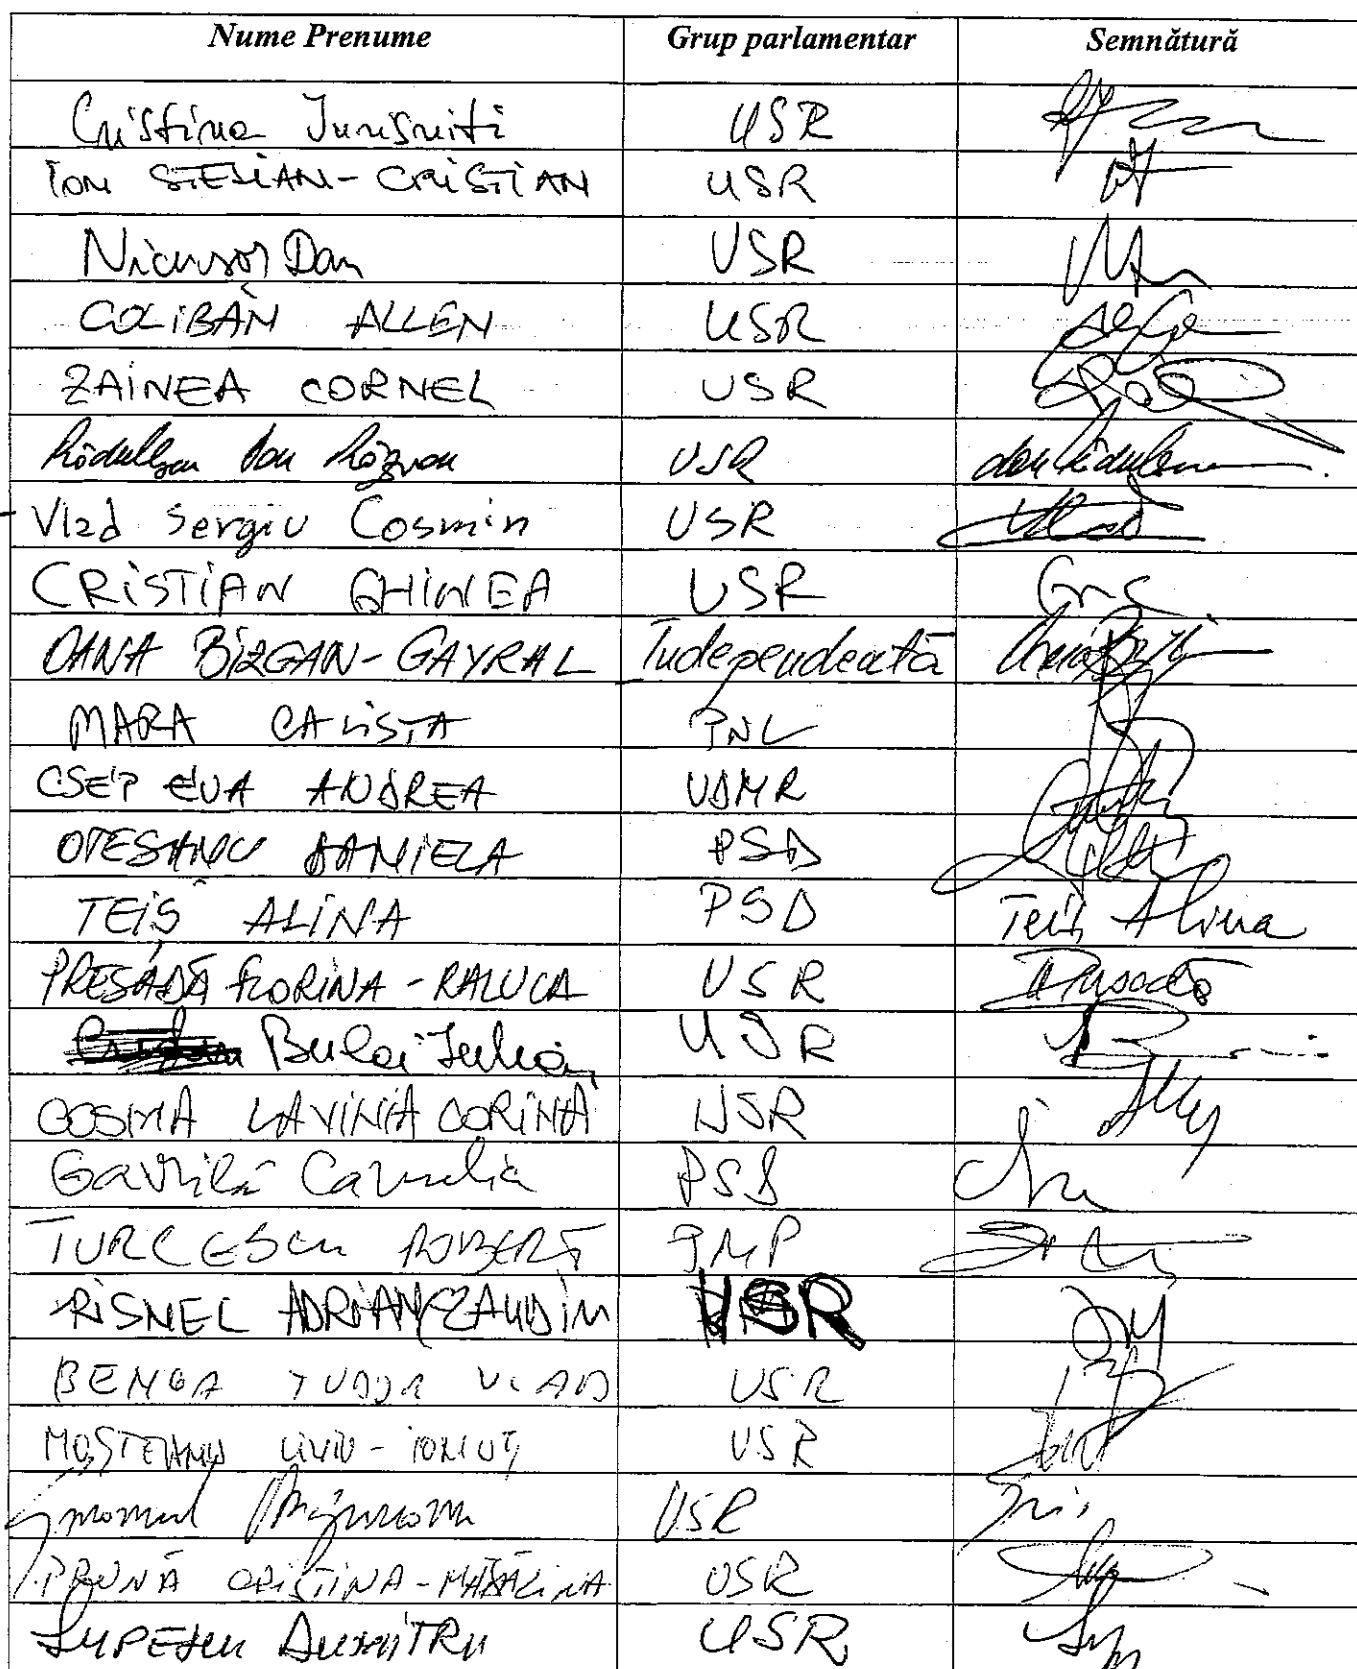 Nume Prenume Grup parlamentar Semnătură
Cristina Iurisniti USR
ION STELIAN-CRISTIAN USR
Nicusor Dan USR
COLIBĂN ALLEN USR
ZAINEA CORNEL USR
Rădulescu Dan Răzvan USR dan Rădulescu
Vlad Sergiu Cosmin USR Vlad
CRISTIAN GHINEA USR
OANA BIZGAN-GAYRAL Independentă
MARA CALISTA PNL
CSEP EVA ANDREA UDMR
OTESANU DANIELA PSD
TEIȘ ALINA PSD Teiș Alina
PRESADĂ FLORINA-RALUCA USR Presadă
Bulai Iulian USR
COSMA LAVINIA CORINA USR
Gavrilă Camelia PSD
TURCESCU ROBERT PMP
PRISNEL ADRIAN-CLAUDIU USR
BENGA TUDOR VLAD USR
MOȘTEANU LIVIU-IONUȚ USR
USR
PRUNĂ CRISTINA-MĂDĂLINA USR
LUPESCU DUMITRU USR